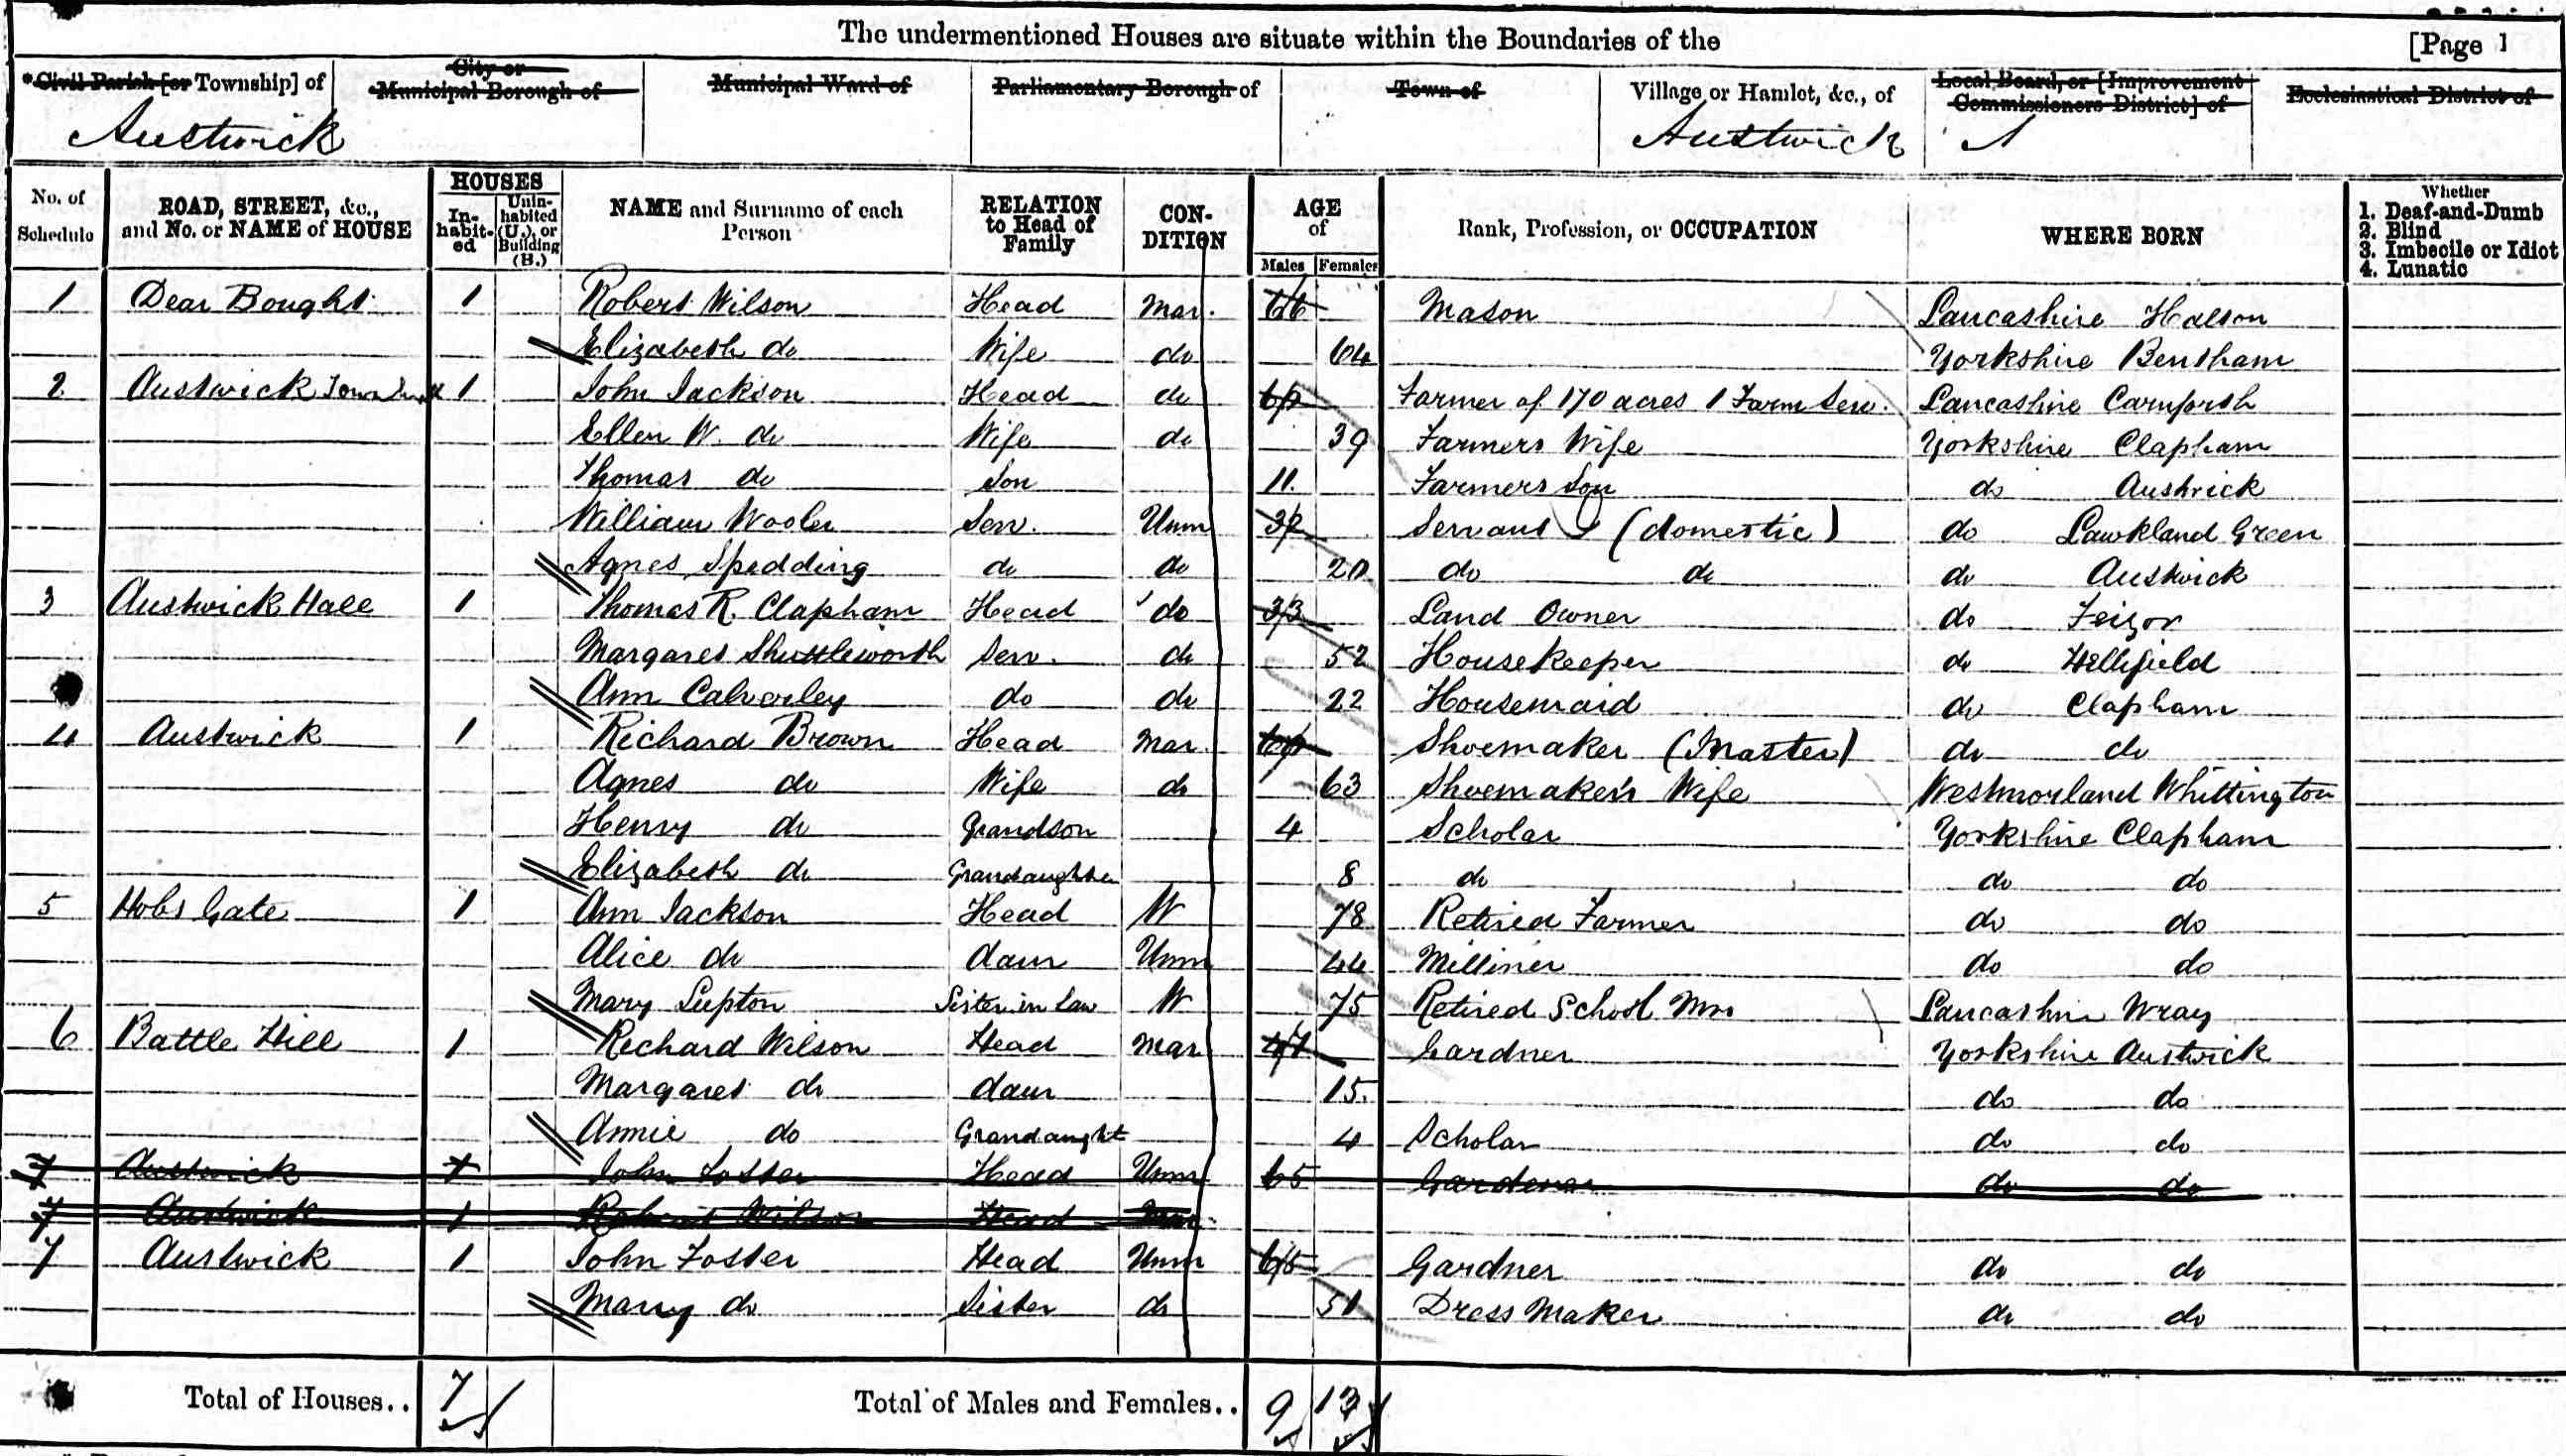 The undermentioned Houses are situate within the Boundaries of the [Page 1
*Civil Parish [or Township] of City or Municipal Borough of Municipal Ward of Parliamentary Borough of Town of Village or Hamlet, &c., of Local Board, or [Improvement Commissioners District] of Ecclesiastical District of
Austwick Austwick
No. of Schedule ROAD, STREET, &c., and No. or NAME of HOUSE HOUSES In-habit-ed Unin-habited (U.), or Building (B.) NAME and Surname of each Person RELATION to Head of Family CON-DITION AGE of Males Females Rank, Profession, or OCCUPATION WHERE BORN Whether 1. Deaf-and-Dumb 2. Blind 3. Imbecile or Idiot 4. Lunatic
1 Dear Bought 1 Robert Wilson Head Mar. 66 Mason Lancashire Halson
Elizabeth do Wife do 64 Yorkshire Bentham
2 Austwick Town 1 John Jackson Head do Farmer of 170 acres 1 Farm Serv. Lancashire Carnforth
Ellen W. do Wife do 39 Farmers Wife Yorkshire Clapham
Thomas do Son 11 Farmers Son do Austwick
William Wooler Serv. Unm Servant (domestic) do Lawkland Green
Agnes Spedding do do 20 do do do Austwick
3 Austwick Hall 1 Thomas R. Clapham Head do 33 Land Owner do Feizor
Margaret Shuttleworth Serv. do 52 Housekeeper do Hellifield
Ann Calverley do do 22 Housemaid do Clapham
4 Austwick 1 Richard Brown Head Mar. Shoemaker (Master) do do
Agnes do Wife do 63 Shoemakers Wife Westmorland Whittington
Henry do Grandson 4 Scholar Yorkshire Clapham
Elizabeth do Grandaughter 8 do do do
5 Hobs Gate 1 Ann Jackson Head W 78 Retired Farmer do do
Alice do daur Unm 44 Milliner do do
Mary Lupton Sister in Law W 75 Retired School Mrs Lancashire Wray
6 Battle Hill 1 Richard Wilson Head Mar 47 Gardner Yorkshire Austwick
Margaret do daur 15 do do
Annie do Grandaught 4 Scholar do do
7 Austwick 1 John Foster Head Unm 65 Gardener do do
7 Austwick 1 Robert Wilson Head Mar.
7 Austwick 1 John Foster Head Unm 65 Gardner do do
Mary do Sister do 51 Dress Maker do do
Total of Houses.. 7 Total of Males and Females.. 9 13